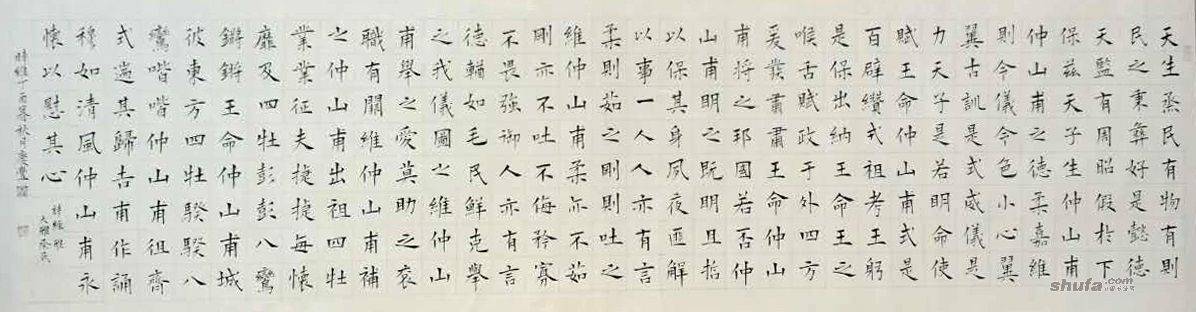 天生烝民有物有則
民之秉彝好是懿德
天監有周昭假於下
保茲天子生仲山甫
仲山甫之德柔嘉維
則令儀令色小心翼
翼古訓是式威儀是
力天子是若明命使
賦王命仲山甫式是
百辟纘戎祖考王躬
是保出納王命王之
喉舌賦政于外四方
爰發肅肅王命仲山
甫將之邦國若否仲
山甫明之既明且哲
以保其身夙夜匪解
以事一人人亦有言
柔則茹之剛則吐之
維仲山甫柔亦不茹
剛亦不吐不侮矜寡
不畏強御人亦有言
德輶如毛民鮮克舉
之我儀圖之維仲山
甫舉之愛莫助之袞
職有闕維仲山甫補
之仲山甫出祖四牡
業業征夫捷捷每懷
靡及四牡彭彭八鸞
鏘鏘王命仲山甫城
彼東方四牡騤騤八
鸞喈喈仲山甫徂齊
式遄其歸吉甫作誦
穆如清風仲山甫永
懷以慰其心
詩經雅
大雅烝民
時維丁酉暮秋月慶豐
shufa.com